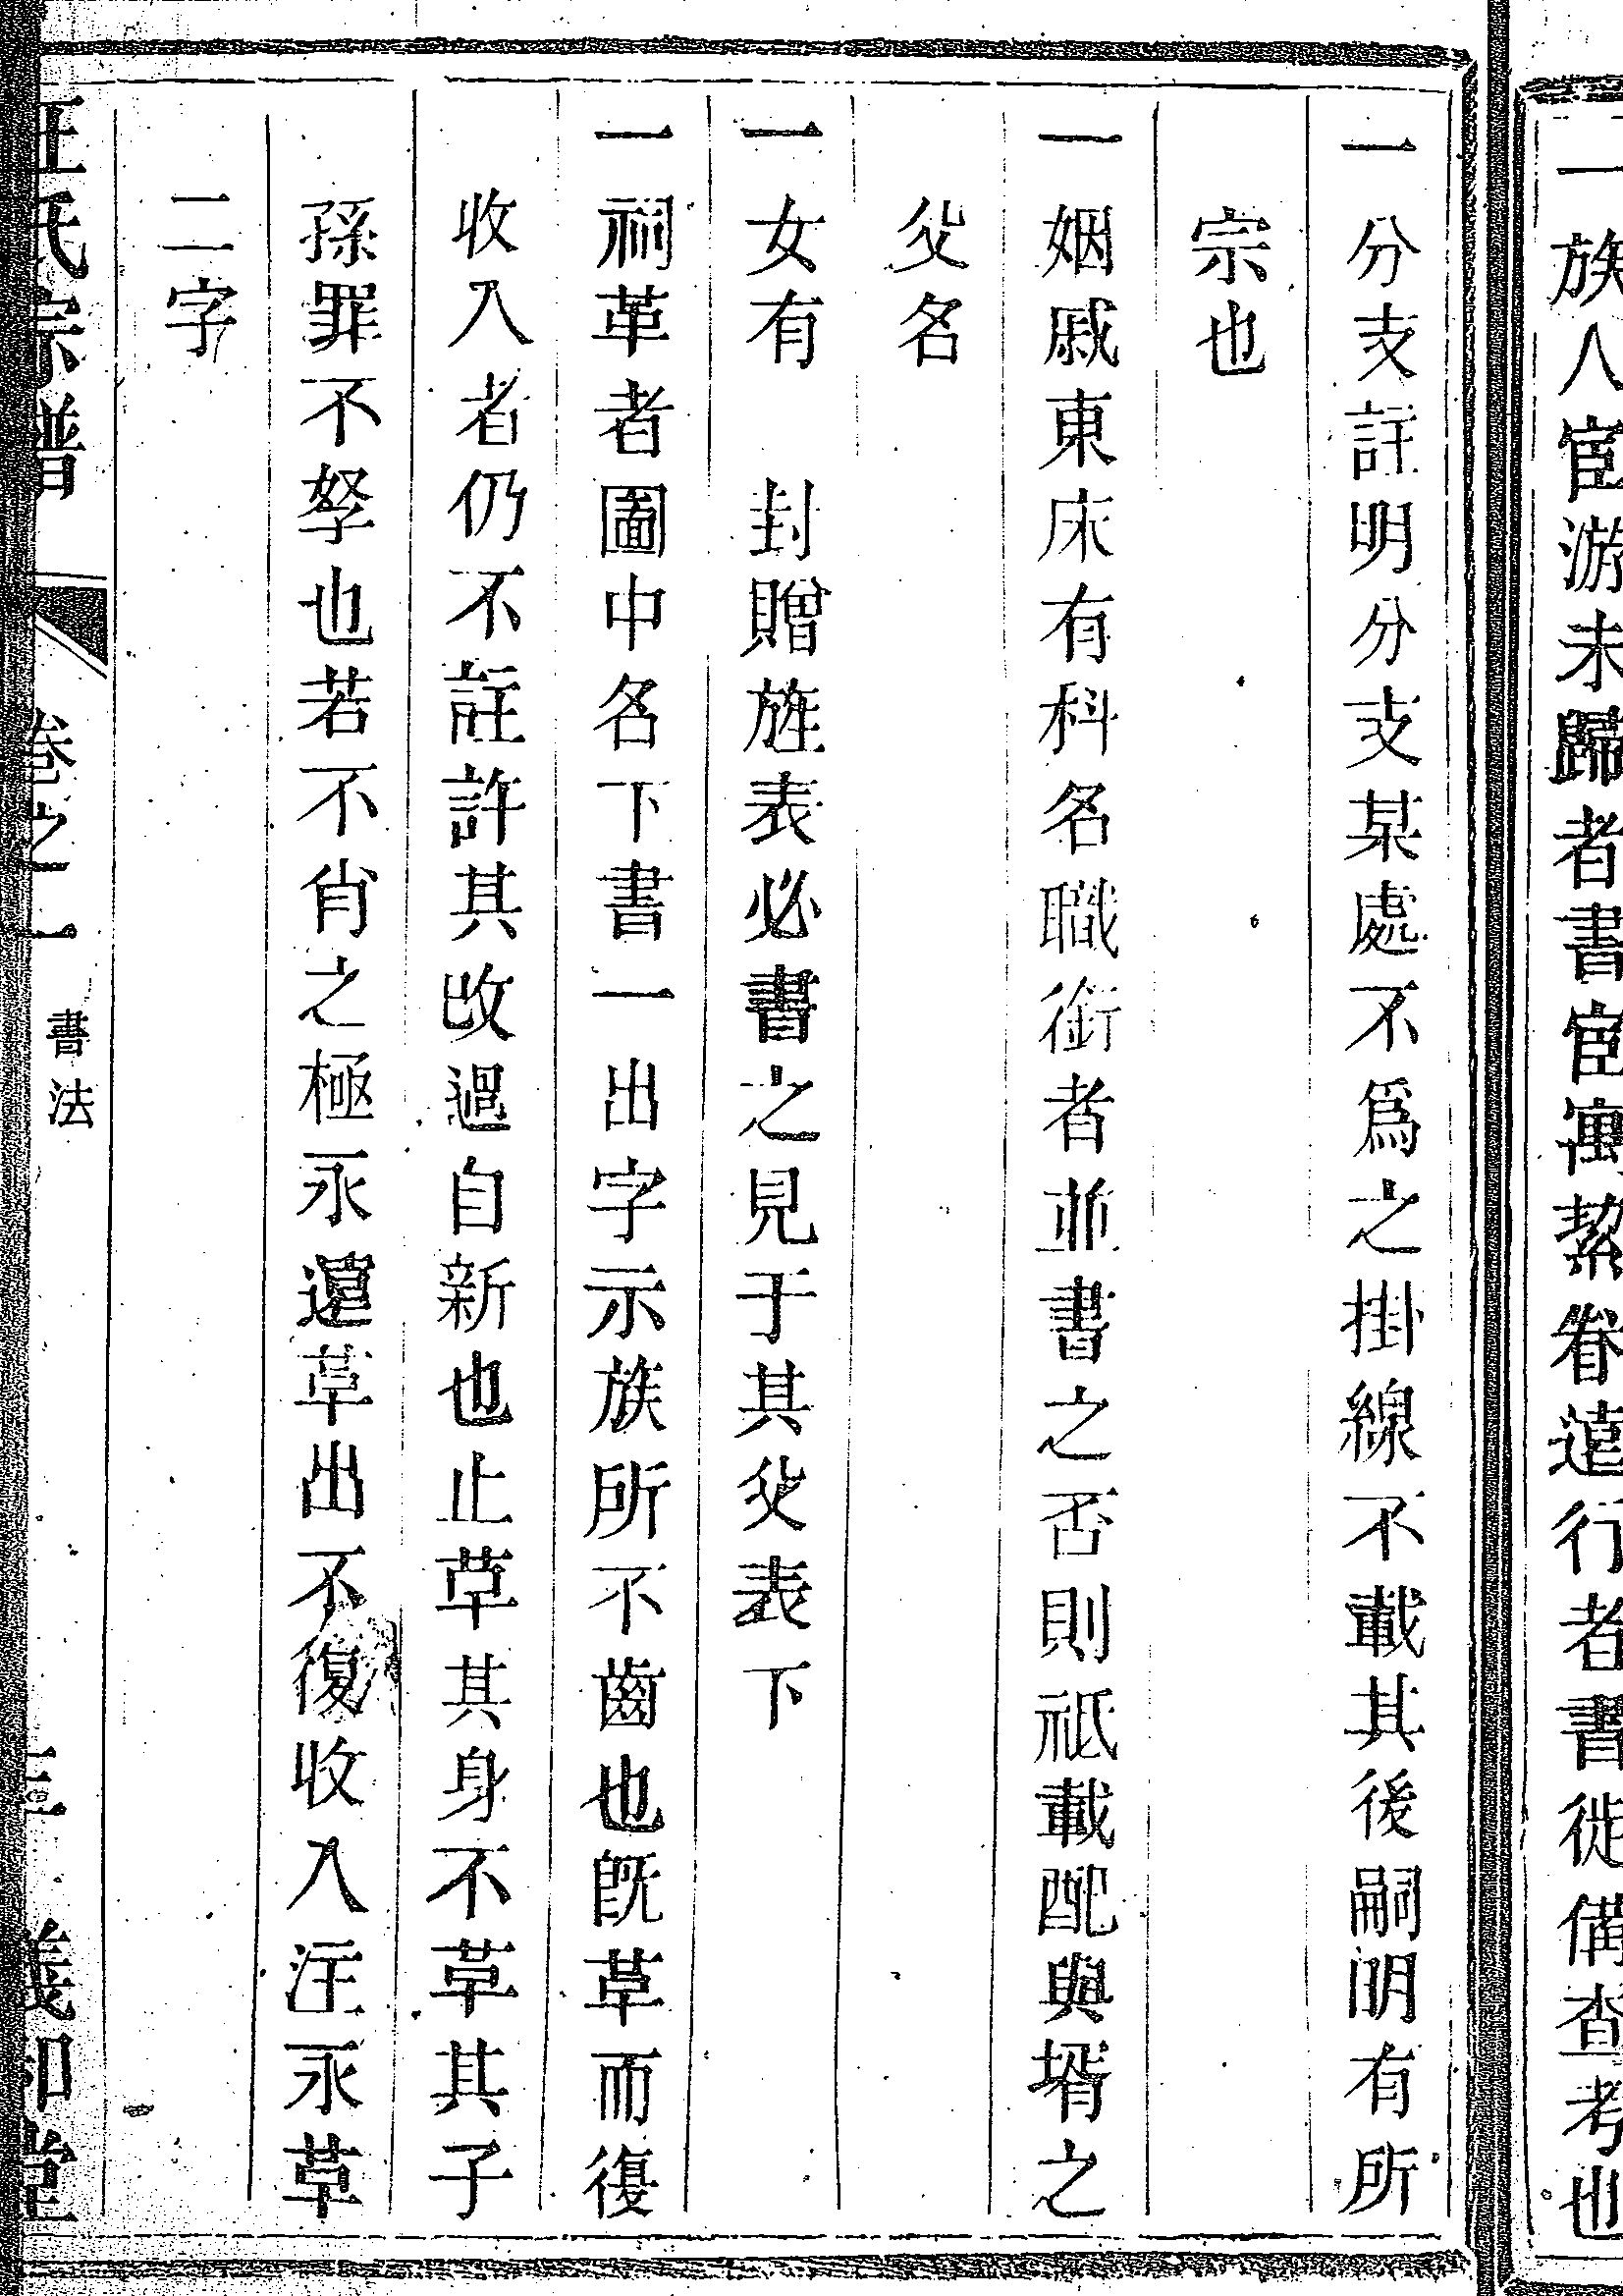 一族人宦游未歸者書宦寓挈眷遠行者書徙備查考也
一分支註明分支某處不爲之掛線不載其後嗣明有所
宗也
一姻戚東床有科名職銜者並書之否則祗載配與壻之
父名
一女有 封贈旌表必書之見于其父表下
一祠革者圖中名下書一出字示族所不齒也既革而復
收入者仍不註許其改過自新也止革其身不革其子
孫罪不孥也若不肖之極永遠革出不復收入注永革
二字
汪氏宗譜 卷之一 書法 三 義和堂